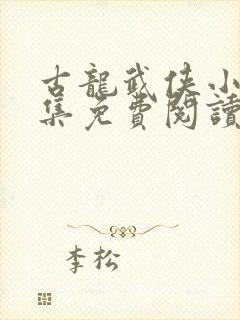 古龍武俠小
集免費閱讀
李松